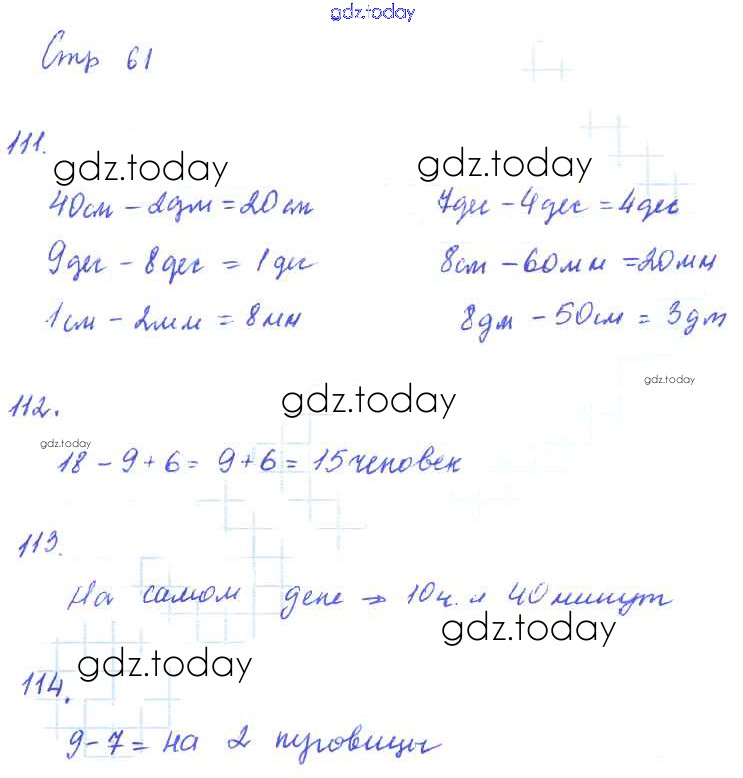 gdz.today
Стр 61
111.
gdz.today gdz.today
40см - 2дм = 20см 7дес - 4дес = 4дес
9дес - 8дес = 1дес 8см - 60мм = 20мм
1см - 2мм = 8мм 8дм - 50см = 3дм
gdz.today
112. gdz.today
gdz.today
18 - 9 + 6 = 9 + 6 = 15 человек
113.
На самом деле → 10ч. и 40 минут
gdz.today
gdz.today
114.
9 - 7 = на 2 пуговицы